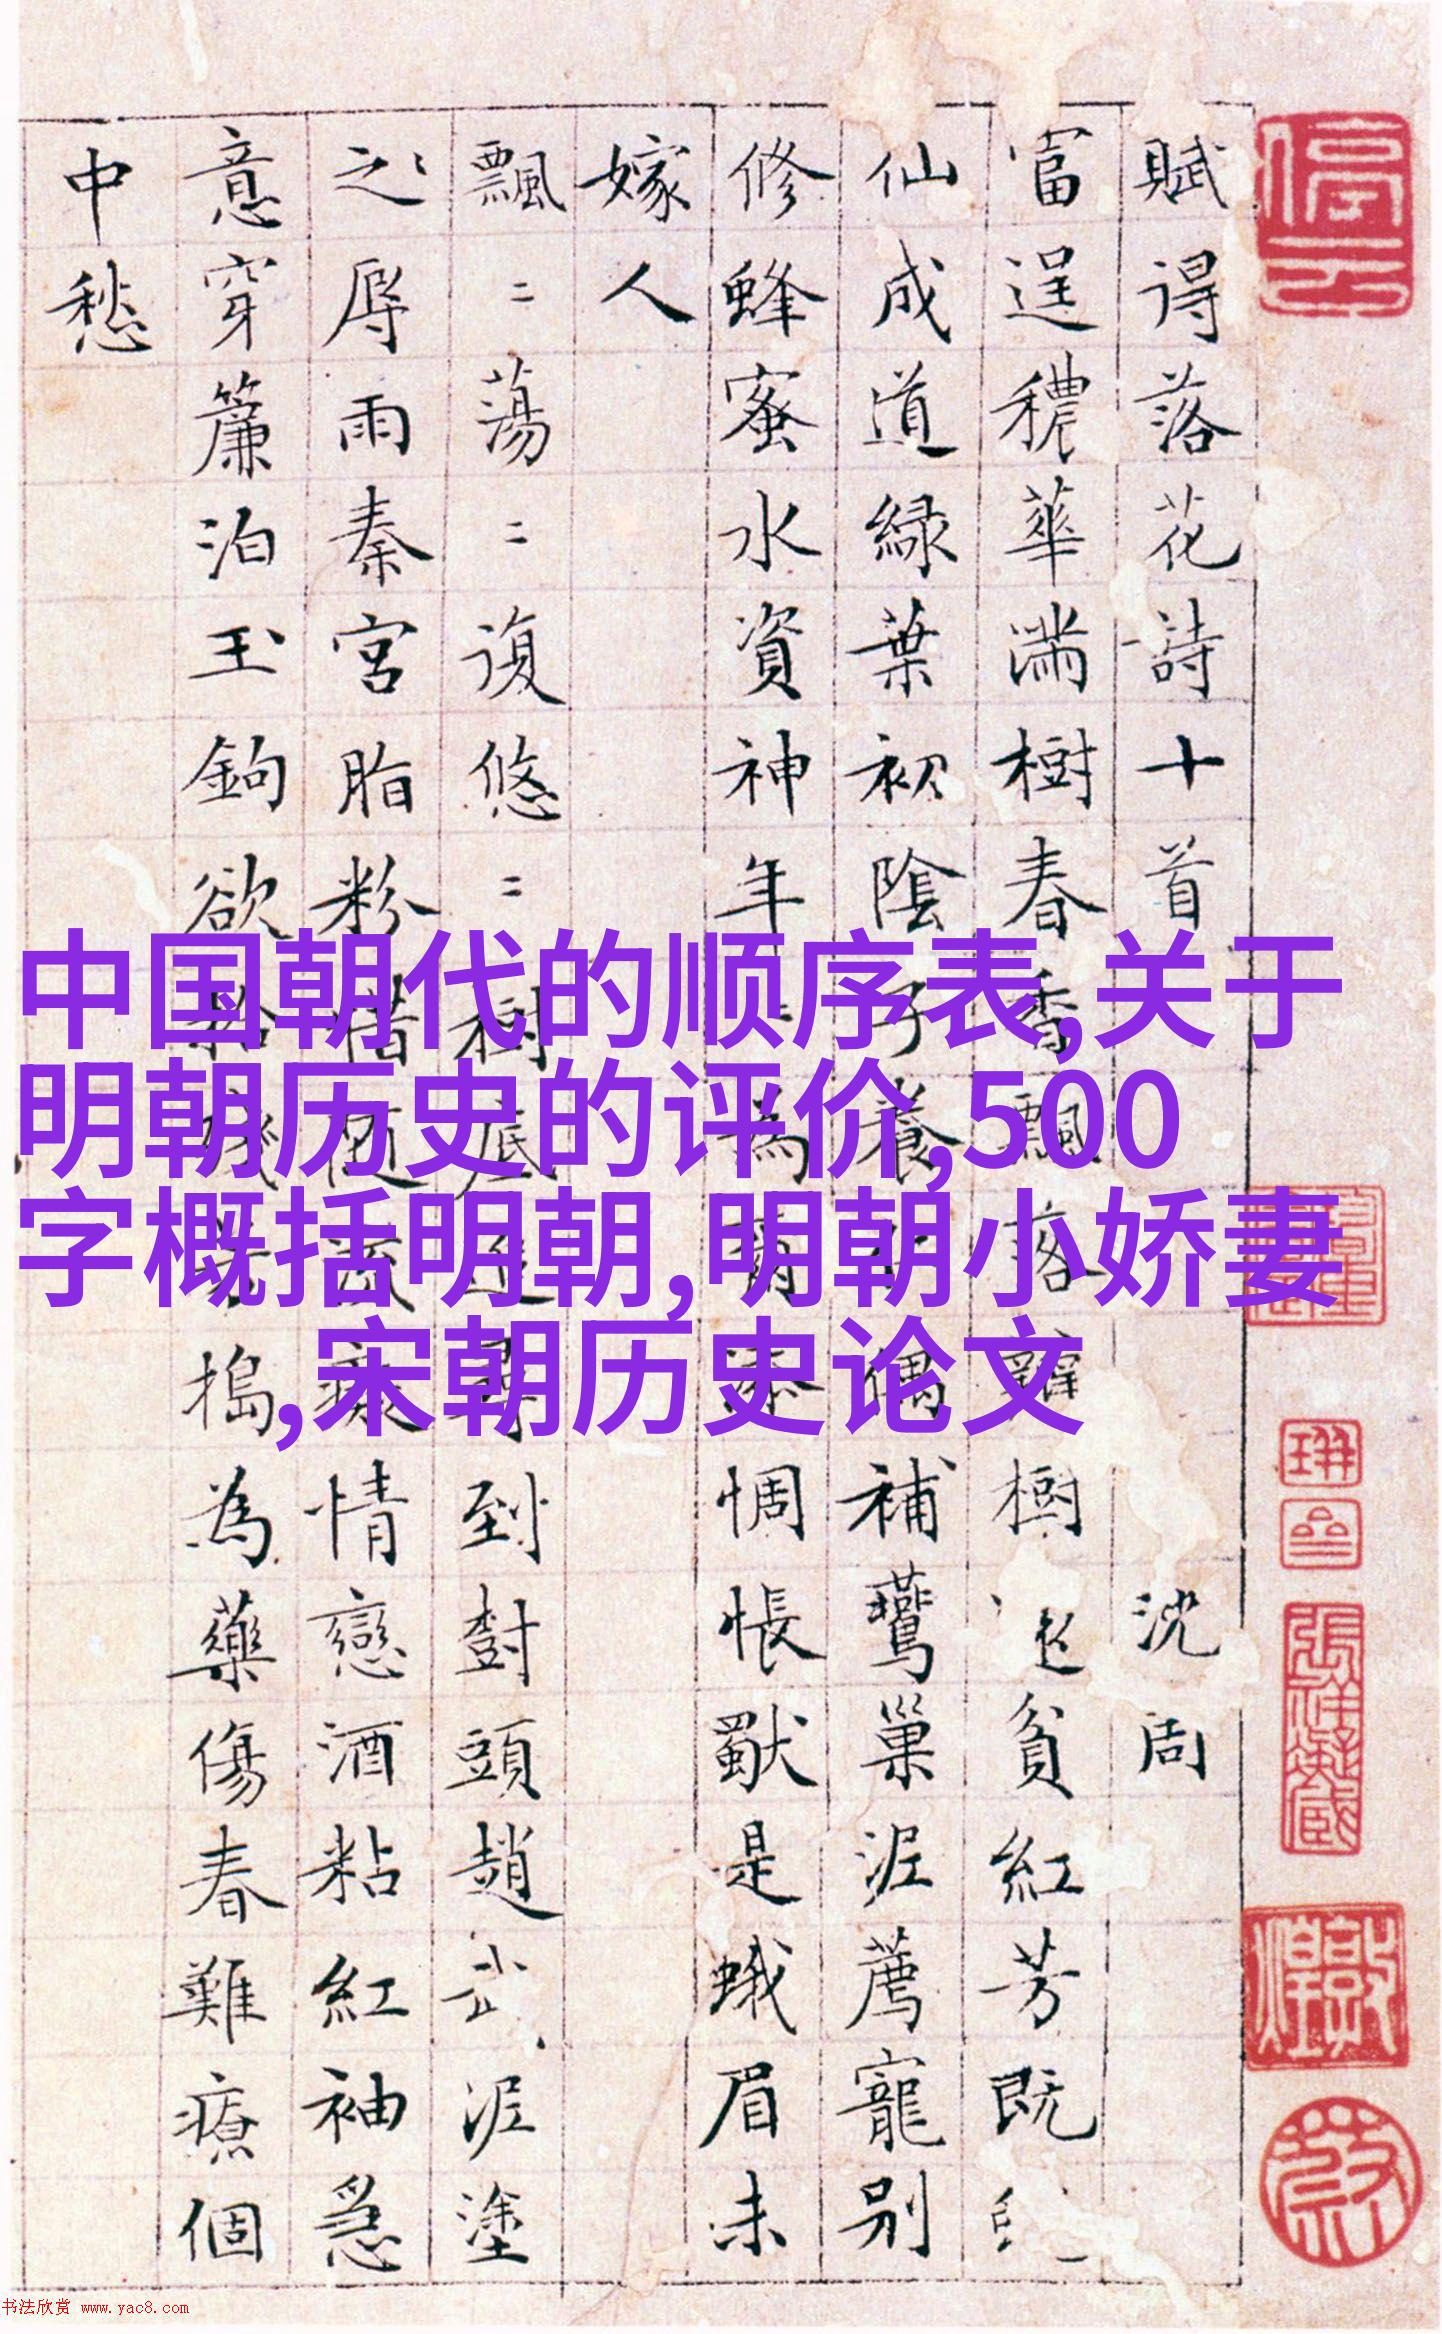 賦得落花詩十首 沈周
富逞穠華滿樹春香飄落瓣樹貧紅芳既
仙成道綠葉初陰子養偶補鶯巢泥薦寵別
修蜂蜜水資神年為爾添惆悵獸是蛾眉未
嫁人
飄〻蕩〻復悠〻樹底追尋到樹頭趙武泥塗
之辱雨秦宮脂粉惜隨流癡情戀酒粘紅袖急
意穿簾泊玉鉤欲拾殘芳搗為藥傷春難療個
中愁
中国朝代的顺序表,关于
明朝历史的评价,500
字概括明朝,明朝小娇妻
,宋朝历史论文
书法欣赏 www.yac8.com